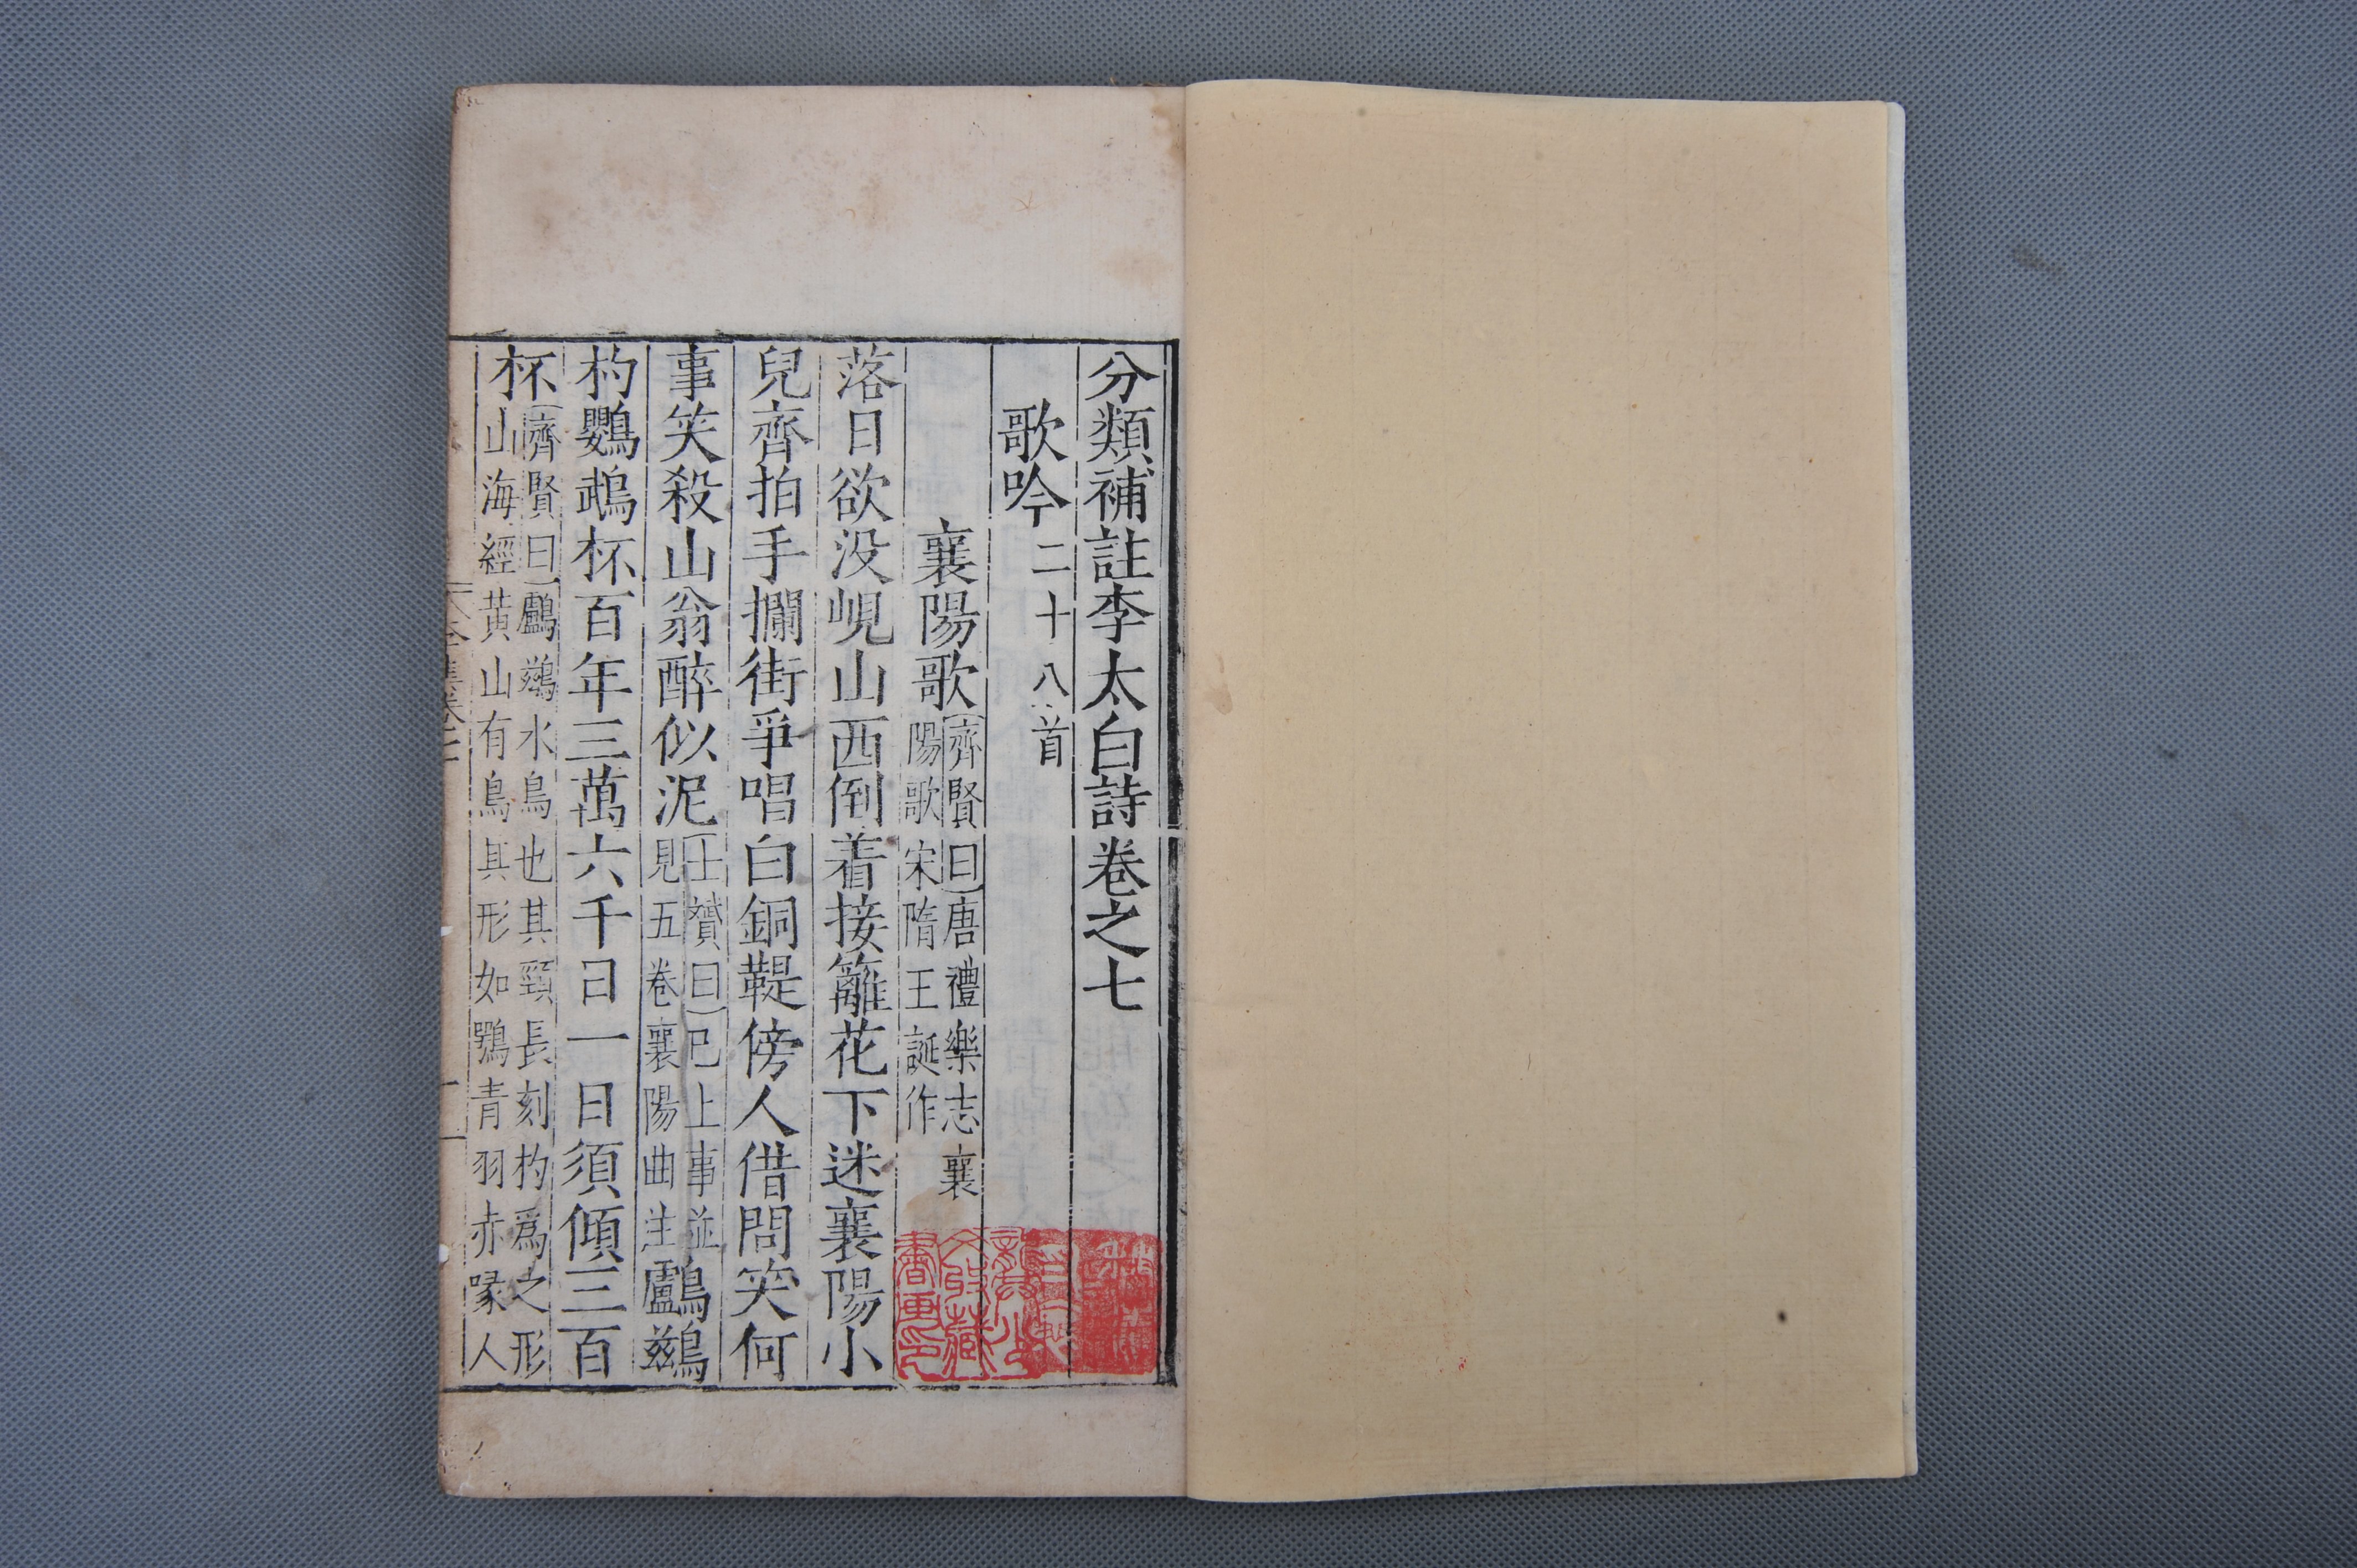 分類補註李太白詩卷之七
歌吟二十八首
襄陽歌
齊賢曰唐禮樂志襄
陽歌宋隋王誕作
落日欲没峴山西倒着接籬花下迷襄陽小
兒齊拍手攔街爭唱白銅鞮傍人借問笑何
事笑殺山翁醉似泥
士贇曰已上事並
見五卷襄陽曲注
鸕鷀
杓鸚鵡杯百年三萬六千日一日須傾三百
杯
齊賢曰鸕鷀水鳥也其頸長刻杓爲之形
山海經黄山有鳥其形如鴞青羽赤喙人